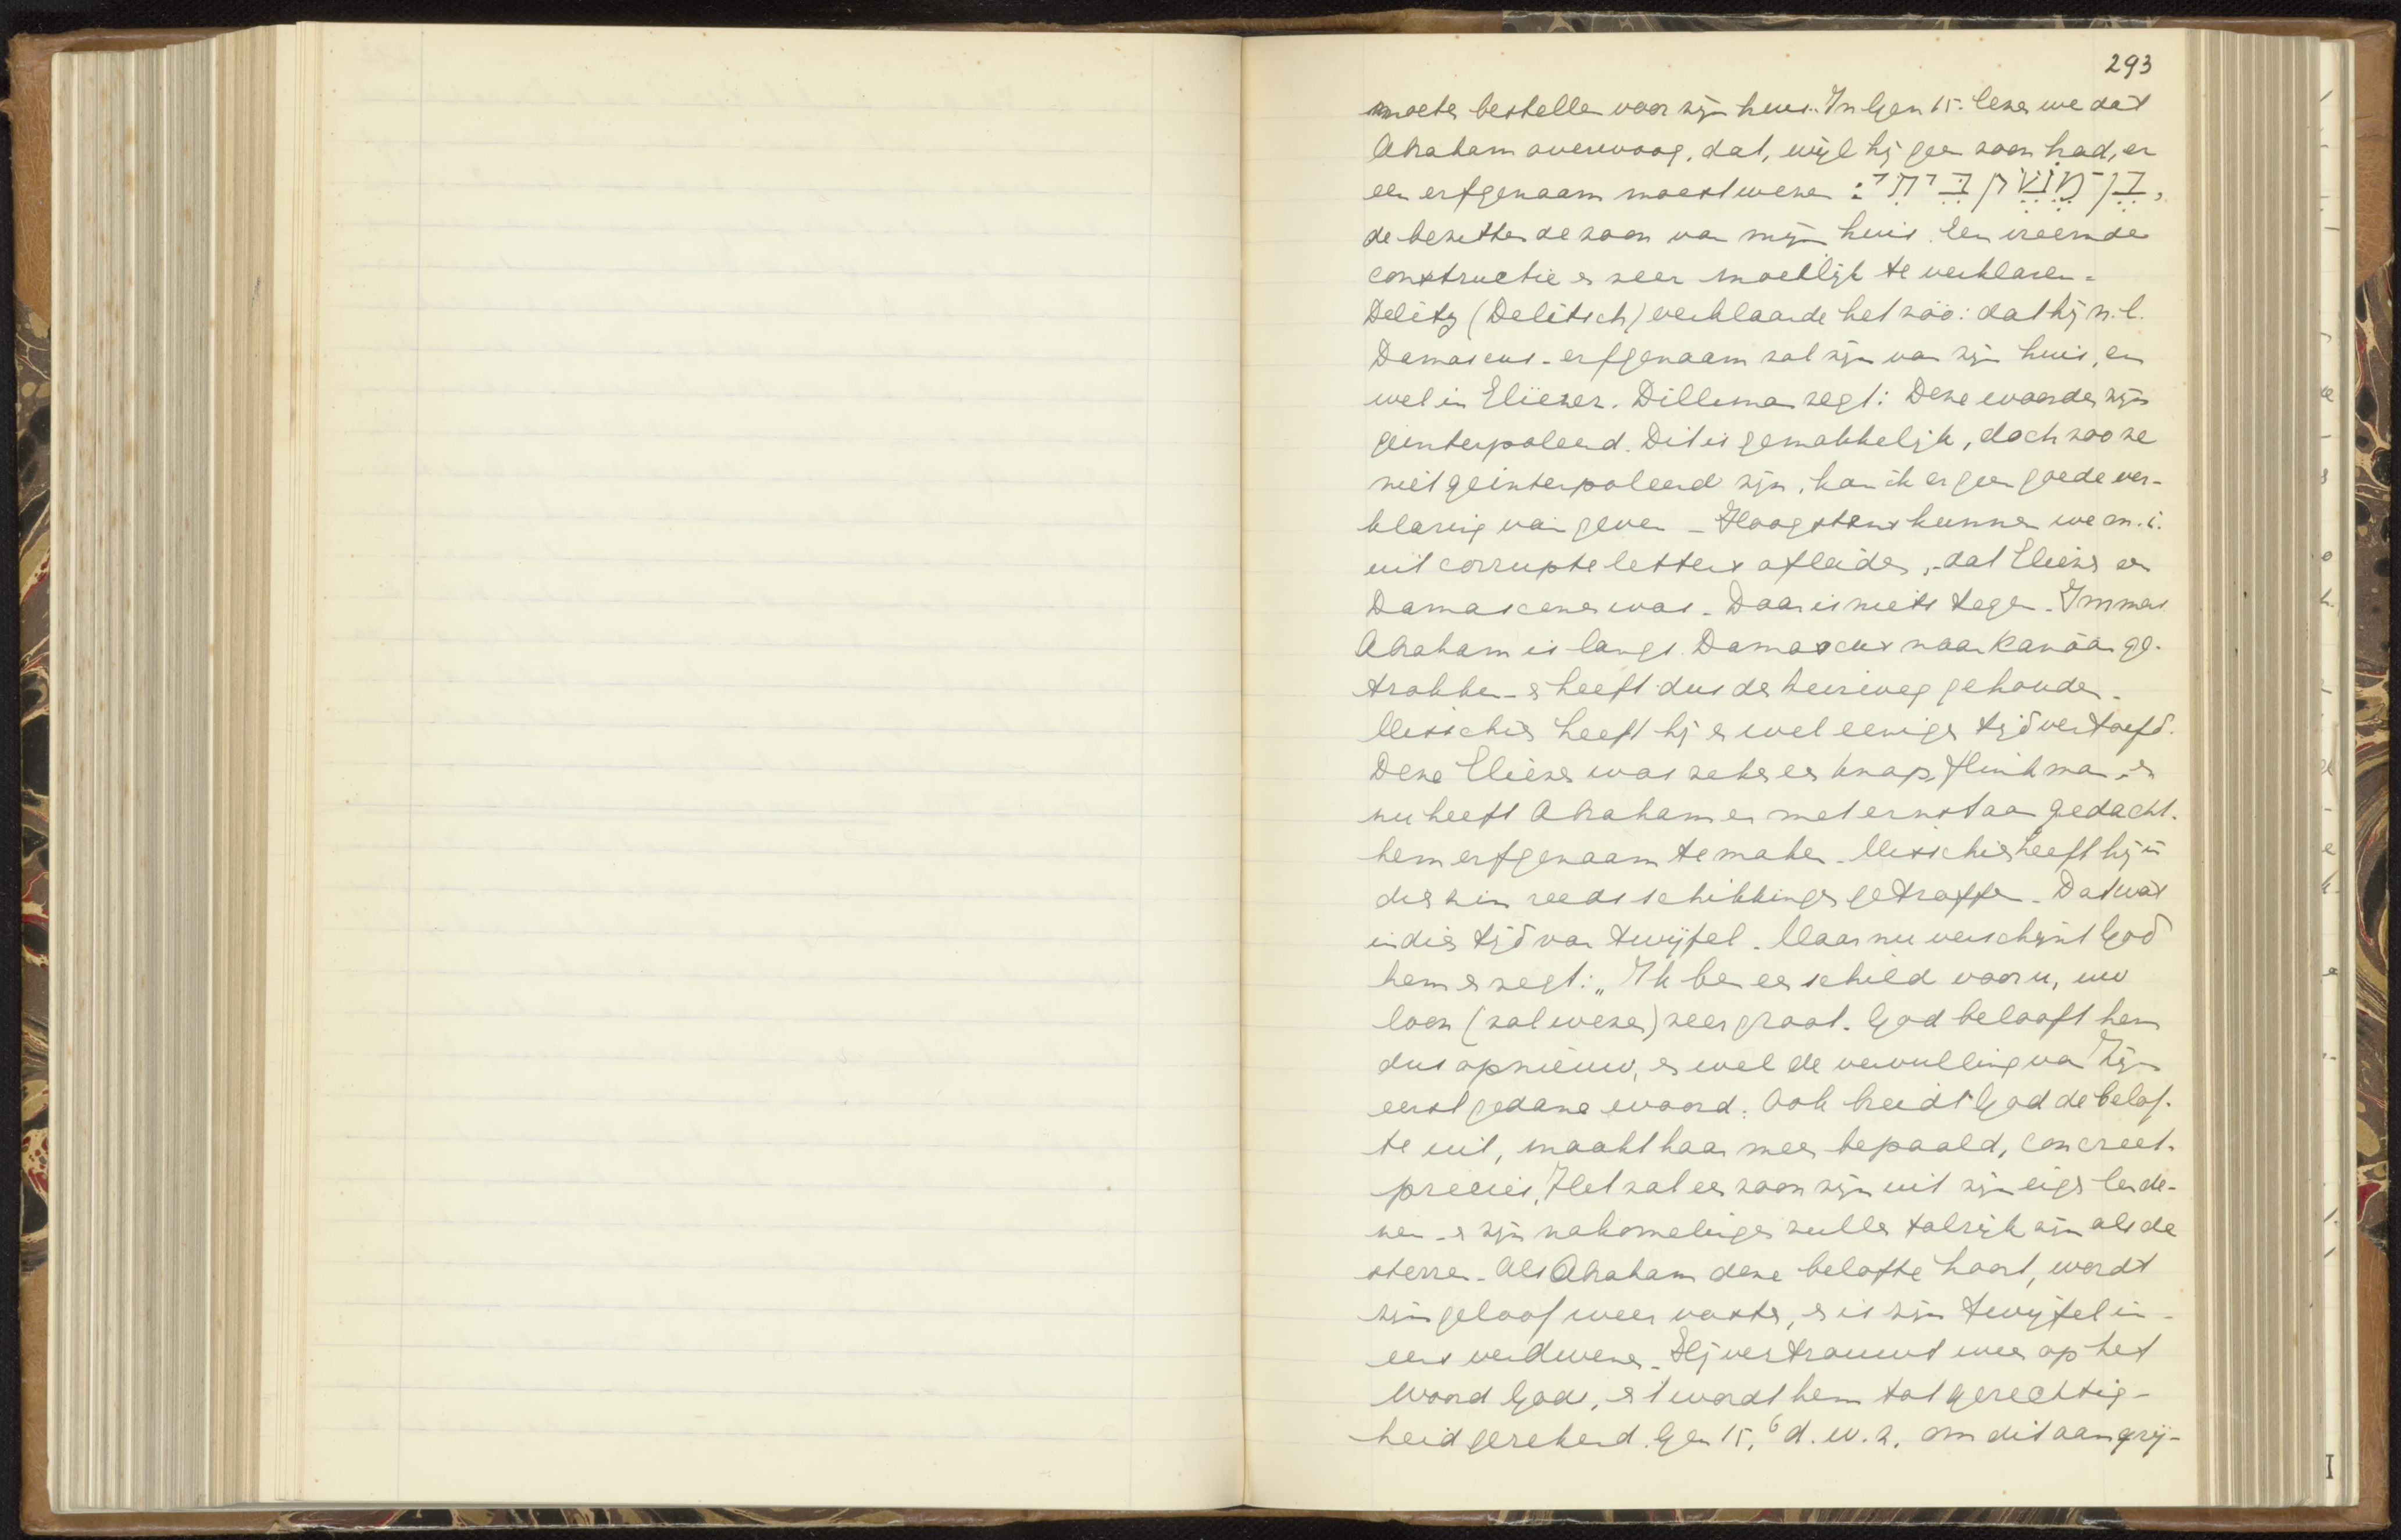 293
moeten bestellen voor zijn huis. In Gen 15. lezen we dat
Abraham overwoog, dat, wijl hij geen zoon had, er
een erfgenaam moest wezen : בֶּן מֶשֶׁק בֵּיתִי,
de bezitter de zoon van mijn huis. Een vreemde
constructie en zeer moeilijk te verklaren -
Delitz (Delitsch) verklaarde het zóó: dat hij n.l.
Damascus - erfgenaam zal zijn van zijn huis, en
wel in Eliëzer. Dillman zegt: Deze woorden zijn
geinterpoleerd. Dit is gemakkelijk, doch zoo ze
niet geinterpoleerd zijn, kan ik er geen goede ver-
klaring van geven - Hoogstens kunnen we m.i.
uit corrupte letters afleiden, dat Eliezer een
Damascener was. Daar is niets tegen. Immers
Abraham is langs Damascus naar Kanaän ge-
trokken - en heeft dus de heirweg gehouden -
Misschien heeft hij er wel eenigen tijd vertoefd.
Deze Eliezer was zeker een knap, flink man, en
nu heeft Abraham er met ernst aan gedacht.
hem erfgenaam te maken. Misschien heeft hij in
dien zin reeds schikkingen getroffen. Dat was
in dien tijd van twijfel. Maar nu verschijnt God
hem en zegt: „Ik ben een schild voor u, uw
loon (zal wezen) zeer groot. God belooft hem
dus opnieuw, en wel de vervulling van Zijn
eerst gedane woord. Ook breidt God de belof-
te uit, maakt haar meer bepaald, concreet.
precies, Het zal een zoon zijn uit zijn eigen lende-
nen - en zijn nakomelingen zullen talrijk zijn als de
sterren. Als Abraham deze belofte hoort, wordt
zijn geloof weer vaster, en is zijn twijfel in-
eens verdwenen. Hij vertrouwt weer op het
Woord Gods, en 't wordt hem tot gerechtig-
heid gerekend. Gen 15,6 d.w.z. om dit aangrij-